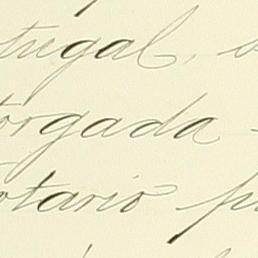 tugal, s
torgada
otario p